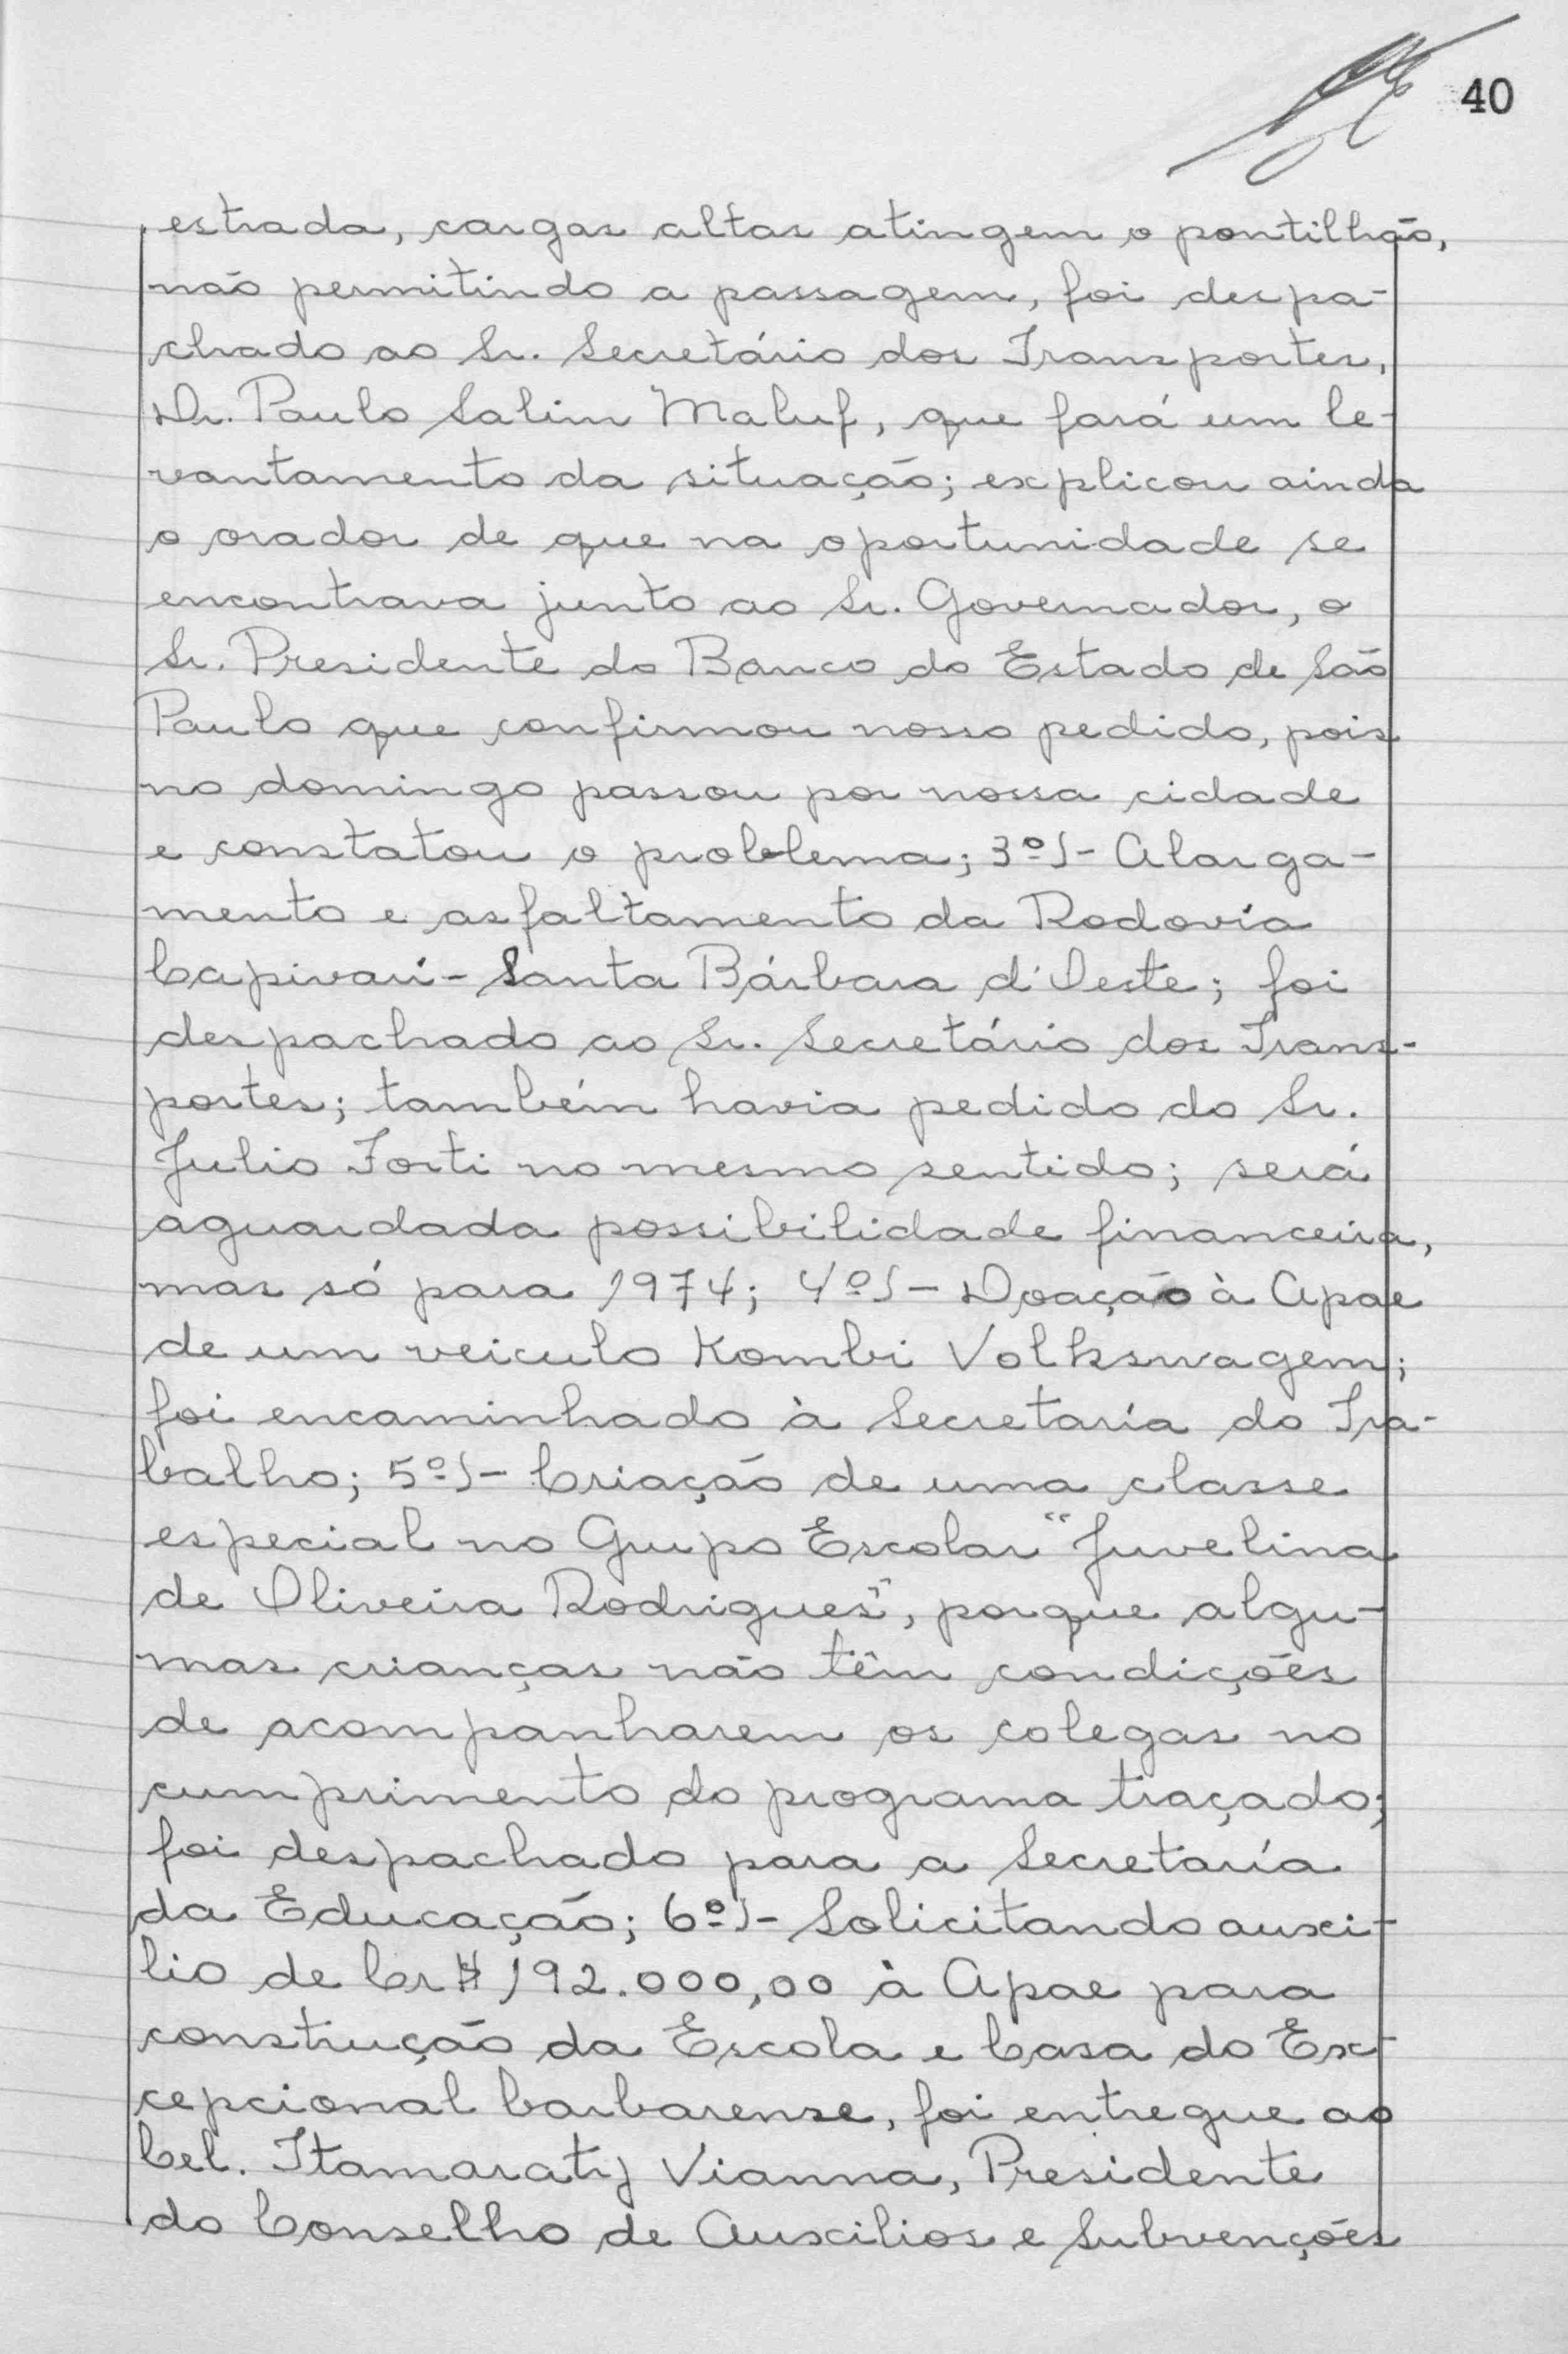 40
estrada, cargas altas atingem o pontilhão,
não permitindo a passagem, foi despa-
chado ao Sr. Secretário dos Transportes,
Dr. Paulo Salim Maluf, que fará um le-
vantamento da situação; explicou ainda
o orador de que na oportunidade se
encontrava junto ao Sr. Governador, o
Sr. Presidente do Banco do Estado de São
Paulo que confirmou nosso pedido, pois
no domingo passou por nossa cidade
e constatou o problema; 3º)- Alarga-
mento e asfaltamento da Rodovia
Capivari - Santa Bárbara d'Oeste; foi
despachado ao Sr. Secretário dos Trans-
portes; também havia pedido do Sr.
Julio Forti no mesmo sentido; será
aguardada possibilidade financeira,
mas só para 1974; 4º)- Doação à Apae
de um veiculo Kombi Volkswagem;
foi encaminhado à Secretaría do Tra-
balho; 5º)- Criação de uma classe
especial no Grupo Escolar "Juvelina
de Oliveira Rodrigues", porque algu-
mas crianças não têm condições
de acompanharem os colegas no
cumprimento do programa traçado;
foi despachado para a Secretaría
da Educação; 6º)- Solicitando auxi-
lio de Cr$ 192.000,00 à Apae para
construção da Escola e Casa do Ex-
cepcional barbarense, foi entregue ao
Cel. Itamaraty Vianna, Presidente
do Conselho de Auxilios e Subvenções